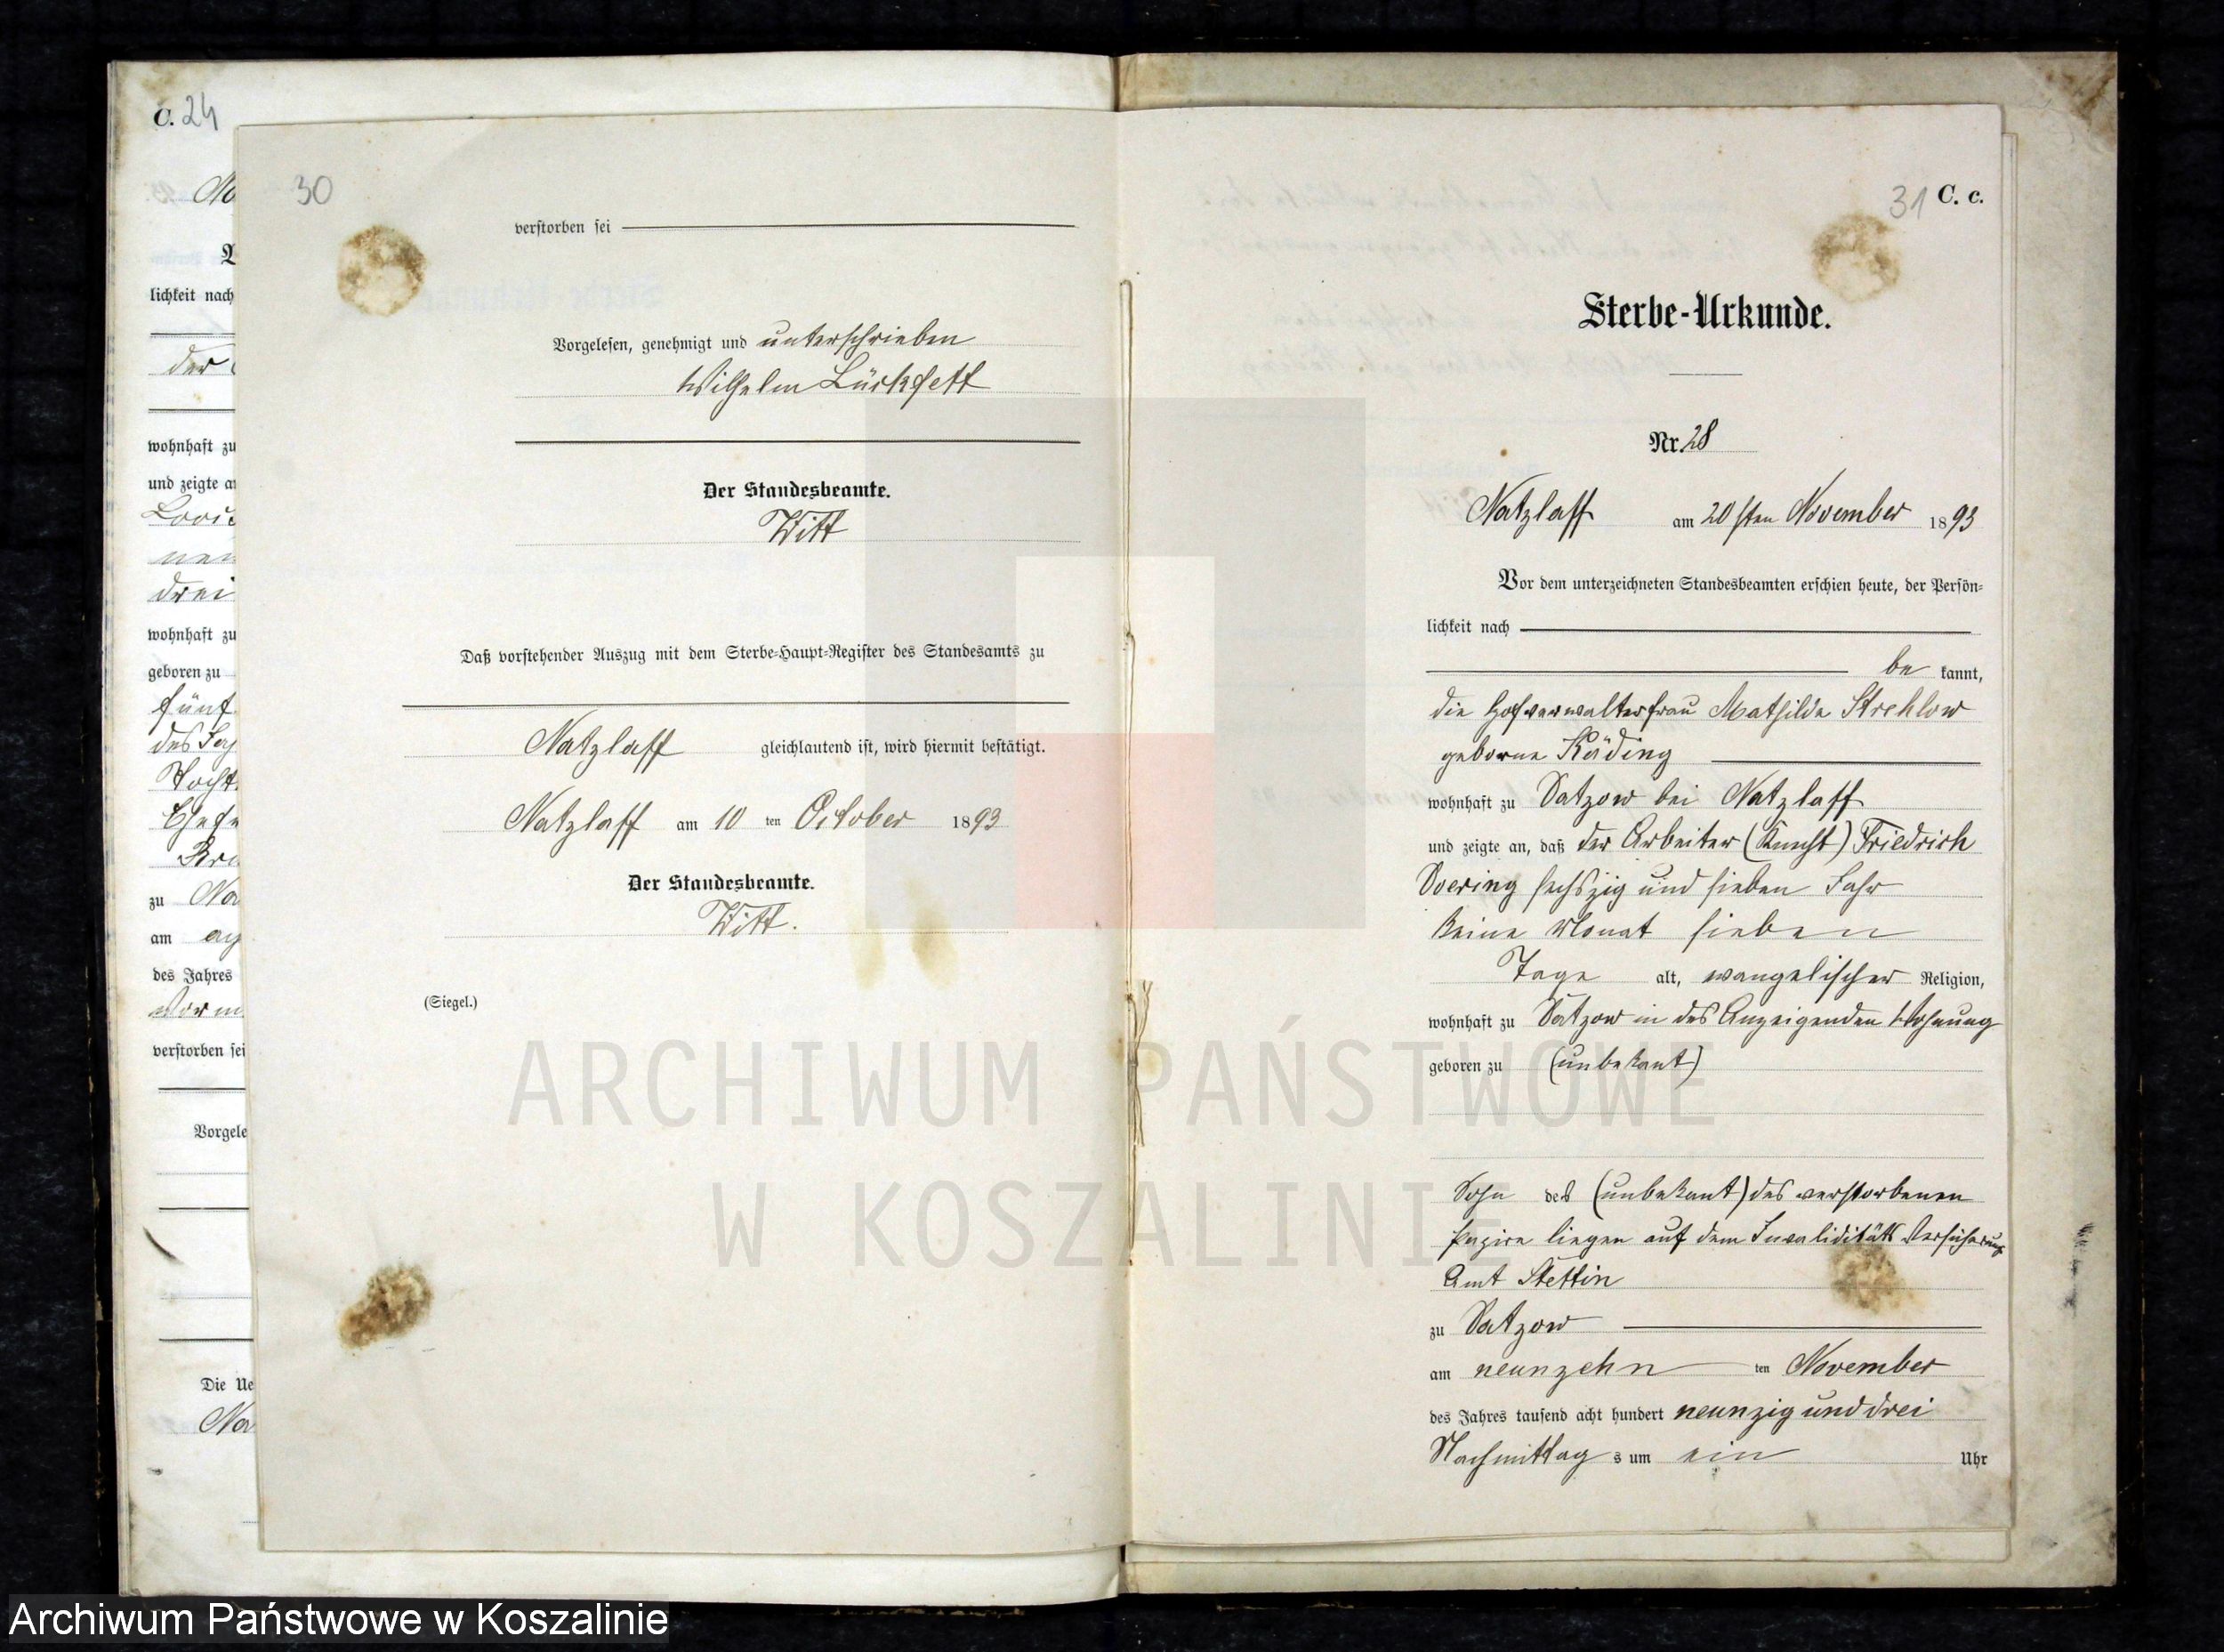 C. 24
No
lichkeit nach
der
wohnhaft zu
und zeigte a
drei
wohnhaft zu
geboren zu
fünf
des Ja
Tocht
zu No
am
des Jahres
Vorm
verstorben sei
Vorgele
Die Ue
No
30
verstorben sei
Vorgelesen, genehmigt und unterschrieben
Wilhelm Lückfett
Der Standesbeamte.
Witt
Daß vorstehender Auszug mit dem Sterbe-Haupt-Register des Standesamts zu
Natzlaff gleichlautend ist, wird hiermit bestätigt.
Natzlaff am 10 ten October 1893
Der Standesbeamte.
Witt.
(Siegel.)
31 C. c.
Sterbe-Urkunde.
Nr. 28
Natzlaff am 20sten November 1893
Vor dem unterzeichneten Standesbeamten erschien heute, der Persön-
lichkeit nach
be kannt,
die Hofverwalterfrau Mathilde Strehlow
geborne Käding
wohnhaft zu Satzow bei Natzlaff
und zeigte an, daß der Arbeiter (Knecht) Friedrich
Doering sechszig und sieben Jahr
keine Monat sieben
Tage alt, evangelischer Religion,
wohnhaft zu Satzow in des Anzeigenden Wohnung
geboren zu (unbekant)
Sohn des (unbekant) des verstorbenen
Papire liegen auf dem Invaliditäts Versicherungs
Amt Stettin
zu Satzow
am neunzehn ten November
des Jahres tausend acht hundert neunzig und drei
Nachmittag s um ein Uhr
ARCHIWUM PAŃSTWOWE
W KOSZALINIE
Archiwum Państwowe w Koszalinie